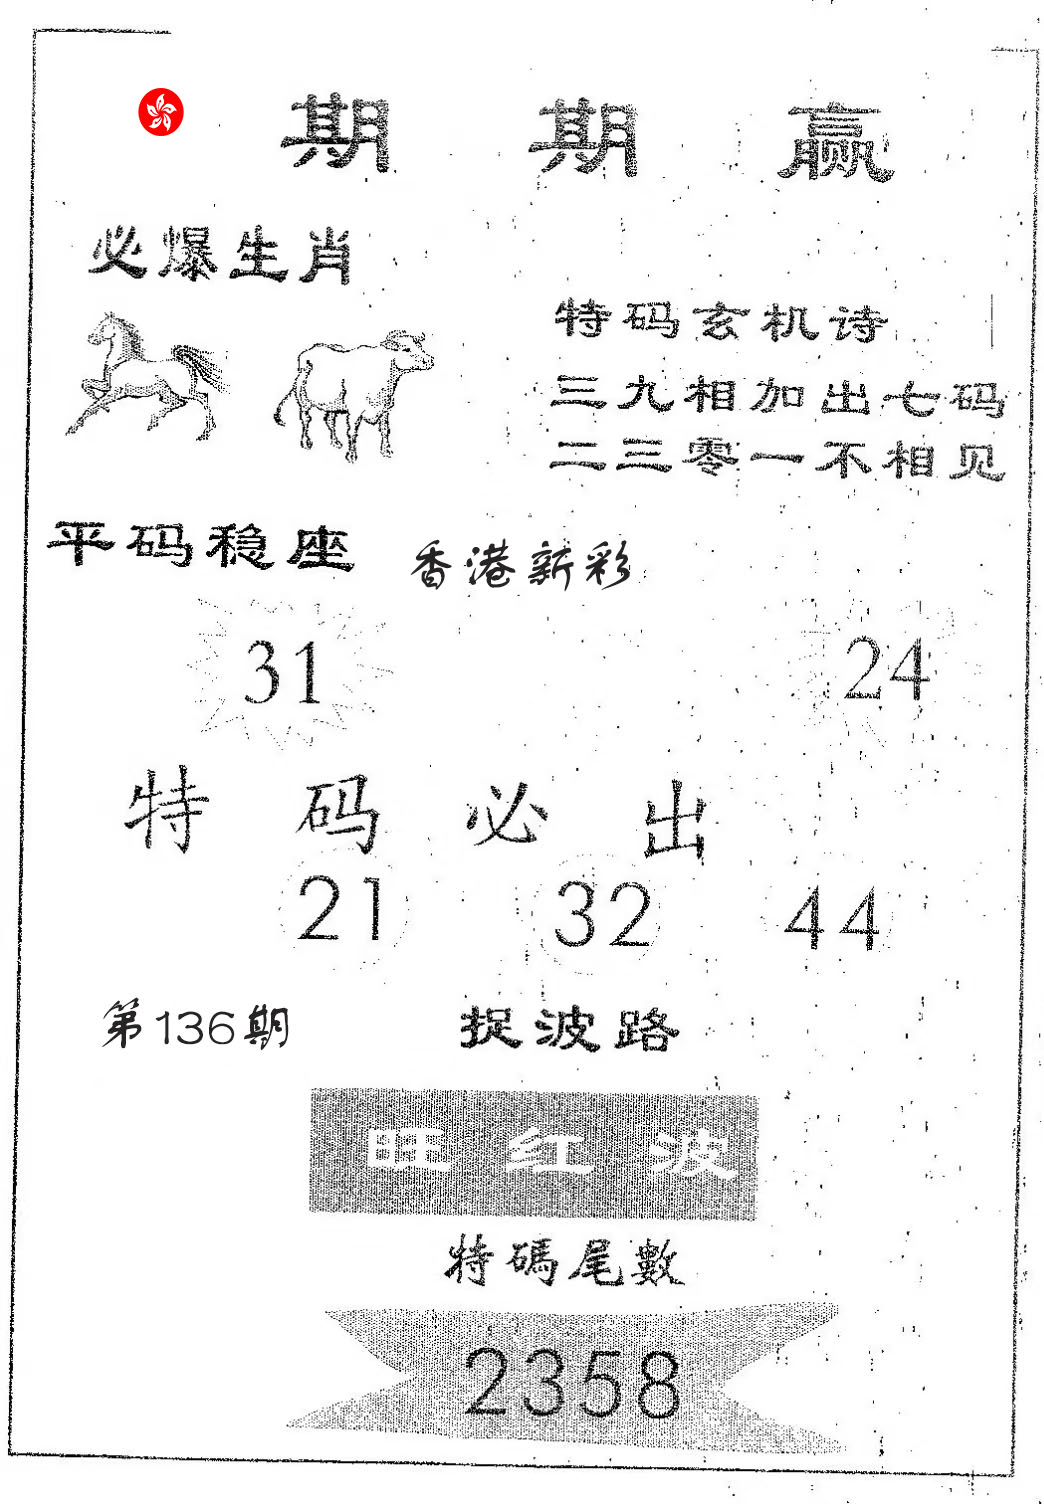 期期赢
必爆生肖
特码玄机诗
三九相加出七码
二三零一不相见
平码稳座
香港新彩
31 24
特码必出
21 32 44
第136期
捉波路
旺红波
特碼尾數
2358